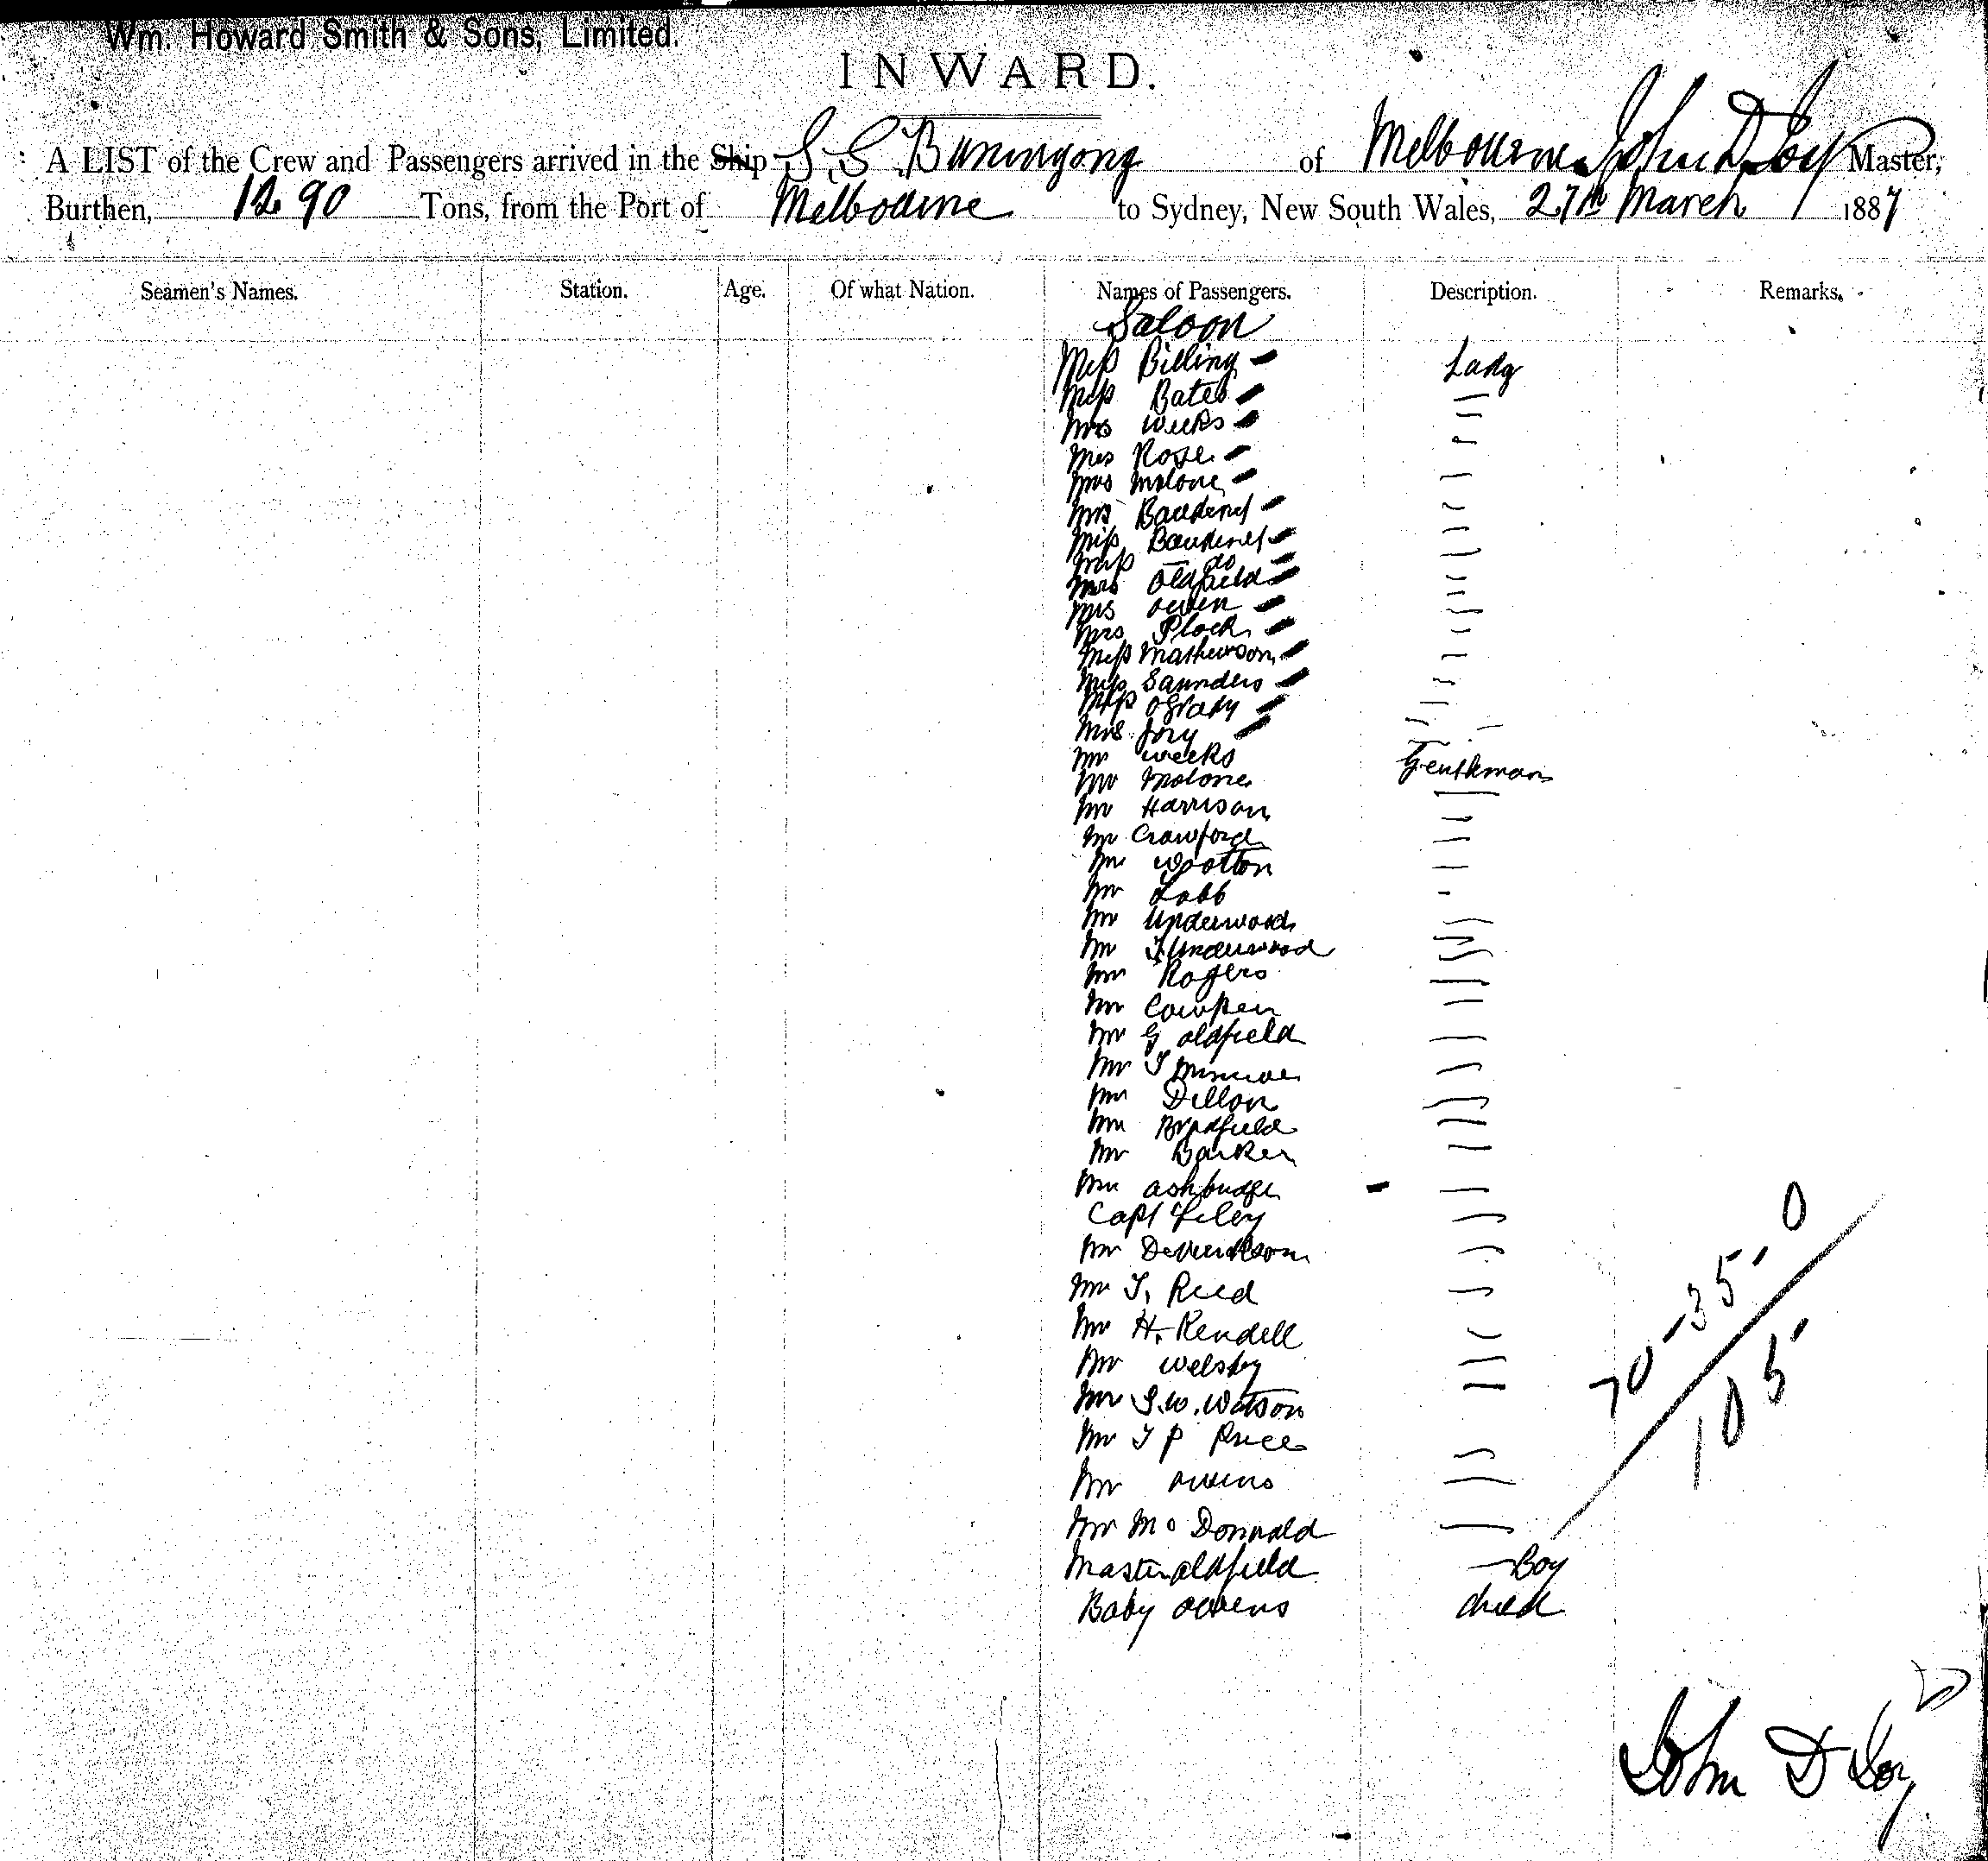 Wm. Howard Smith & Sons, Limited.
INWARD.
A LIST of the Crew and Passengers arrived in the Ship S.S. Buninyong of Melbourne John D Master,
Burthen, 1290 Tons, from the Port of Melbourne to Sydney, New South Wales, 27th March 1887
Seamen's Names. Station. Age. Of what Nation. Names of Passengers. Description. Remarks.
Saloon
Miss Billing Lady
Miss Bates
Mrs Weeks
Mrs Rose
Mrs Malone
Mrs
Miss
Miss — do
Mrs Oldfield
Mrs Owen
Mrs Plock
Miss Mathewson
Miss Saunders
Miss OGrady
Mrs Jory
Mr Weeks Gentleman
Mr Malone
Mr Harrison
Mr Crawford
Mr Wootton
Mr Labb
Mr Underwood
Mr T Underwood
Mr Rogers
Mr Cowper
Mr G Oldfield
Mr T
Mr Dillon
Mr Bradfield
Mr Barker
Mr
Capt
Mr
Mr T. Reed
Mr H. Rendell
Mr Welsby
Mr S.W. Watson
Mr T P Price
Mr Owens
Mr Mc Donnald
Master Oldfield Boy
Baby Owens child
70-35-0
105
John D